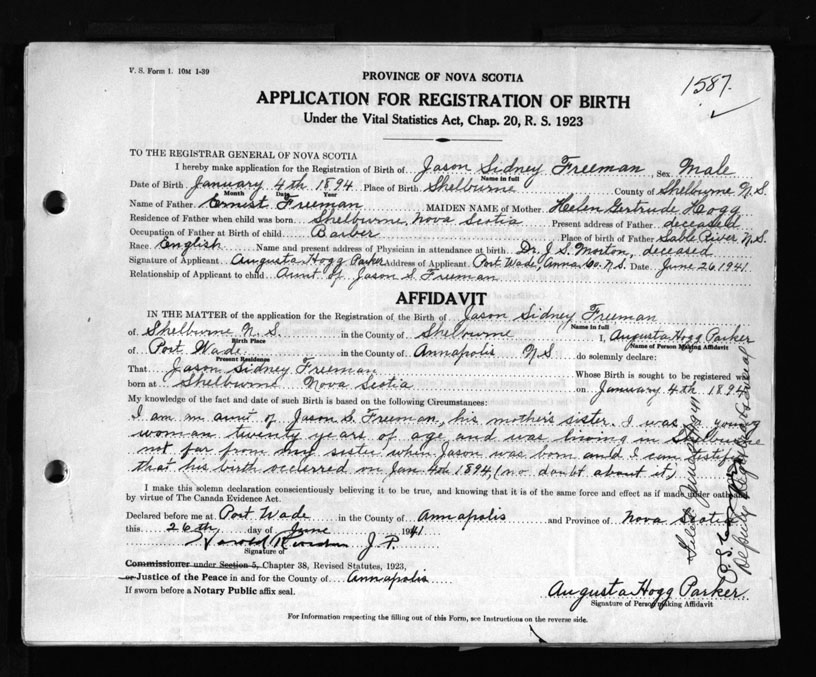 V. S. Form 1. 10M 1-39
1587.
PROVINCE OF NOVA SCOTIA
APPLICATION FOR REGISTRATION OF BIRTH
Under the Vital Statistics Act, Chap. 20, R. S. 1923
TO THE REGISTRAR GENERAL OF NOVA SCOTIA
I hereby make application for the Registration of Birth of Jason Sidney Freeman, Sex Male
Name in full
Date of Birth January 4th 1894 Place of Birth Shelburne County of Shelburne N.S.
Month Date Year
Name of Father Ernist Freeman MAIDEN NAME of Mother Helen Gertrude Hogg
Residence of Father when child was born Shelburne, Nova Scotia Present address of Father deceased
Occupation of Father at Birth of child Barber Place of birth of Father Sable River N.S.
Race English Name and present address of Physician in attendance at birth Dr. J. S. Morton, deceased
Signature of Applicant Augusta Hogg Parker Address of Applicant Port Wade, Anna. Co. N.S. Date June 26 1941
Relationship of Applicant to child Aunt of Jason S. Freeman
AFFIDAVIT
IN THE MATTER of the application for the Registration of the Birth of Jason Sidney Freeman
Name in full
of Shelburne N.S. in the County of Shelburne I, Augusta Hogg Parker
Birth Place Name of Person Making Affidavit
of Port Wade in the County of Annapolis N.S. do solemnly declare:
Present Residence
That Jason Sidney Freeman Whose Birth is sought to be registered was
born at Shelburne Nova Scotia on January 4th 1894
My knowledge of the fact and date of such Birth is based on the following Circumstances:
I am an aunt of Jason S. Freeman, his mother's sister. I was a young
woman twenty years of age and was living in Shelburne
not far from my sister when Jason was born and I can testify
that his birth occurred on Jan 4th 1894, (no doubt about it)
I make this solemn declaration conscientiously believing it to be true, and knowing that it is of the same force and effect as if made under oath
by virtue of The Canada Evidence Act.
Declared before me at Port Wade in the County of Annapolis and Province of Nova Scotia
this 26th day of June 1941
Harold J. P.
Signature of
Commissioner under Section 5, Chapter 38, Revised Statutes, 1923,
or Justice of the Peace in and for the County of Annapolis
If sworn before a Notary Public affix seal.
Augusta Hogg Parker
Signature of Person making Affidavit
For Information respecting the filling out of this Form, see Instructions on the reverse side.
Deputy Registrar General